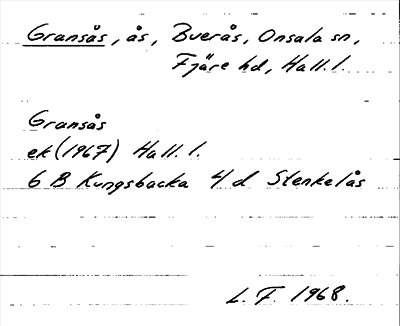 Gransås, ås, Buerås, Onsala sn,
Fjäre hd, Hall. l.
Gransås
ek (1967) Hall. l.
6 B Kungsbacka 4 d Stenkelås
L. F. 1968.